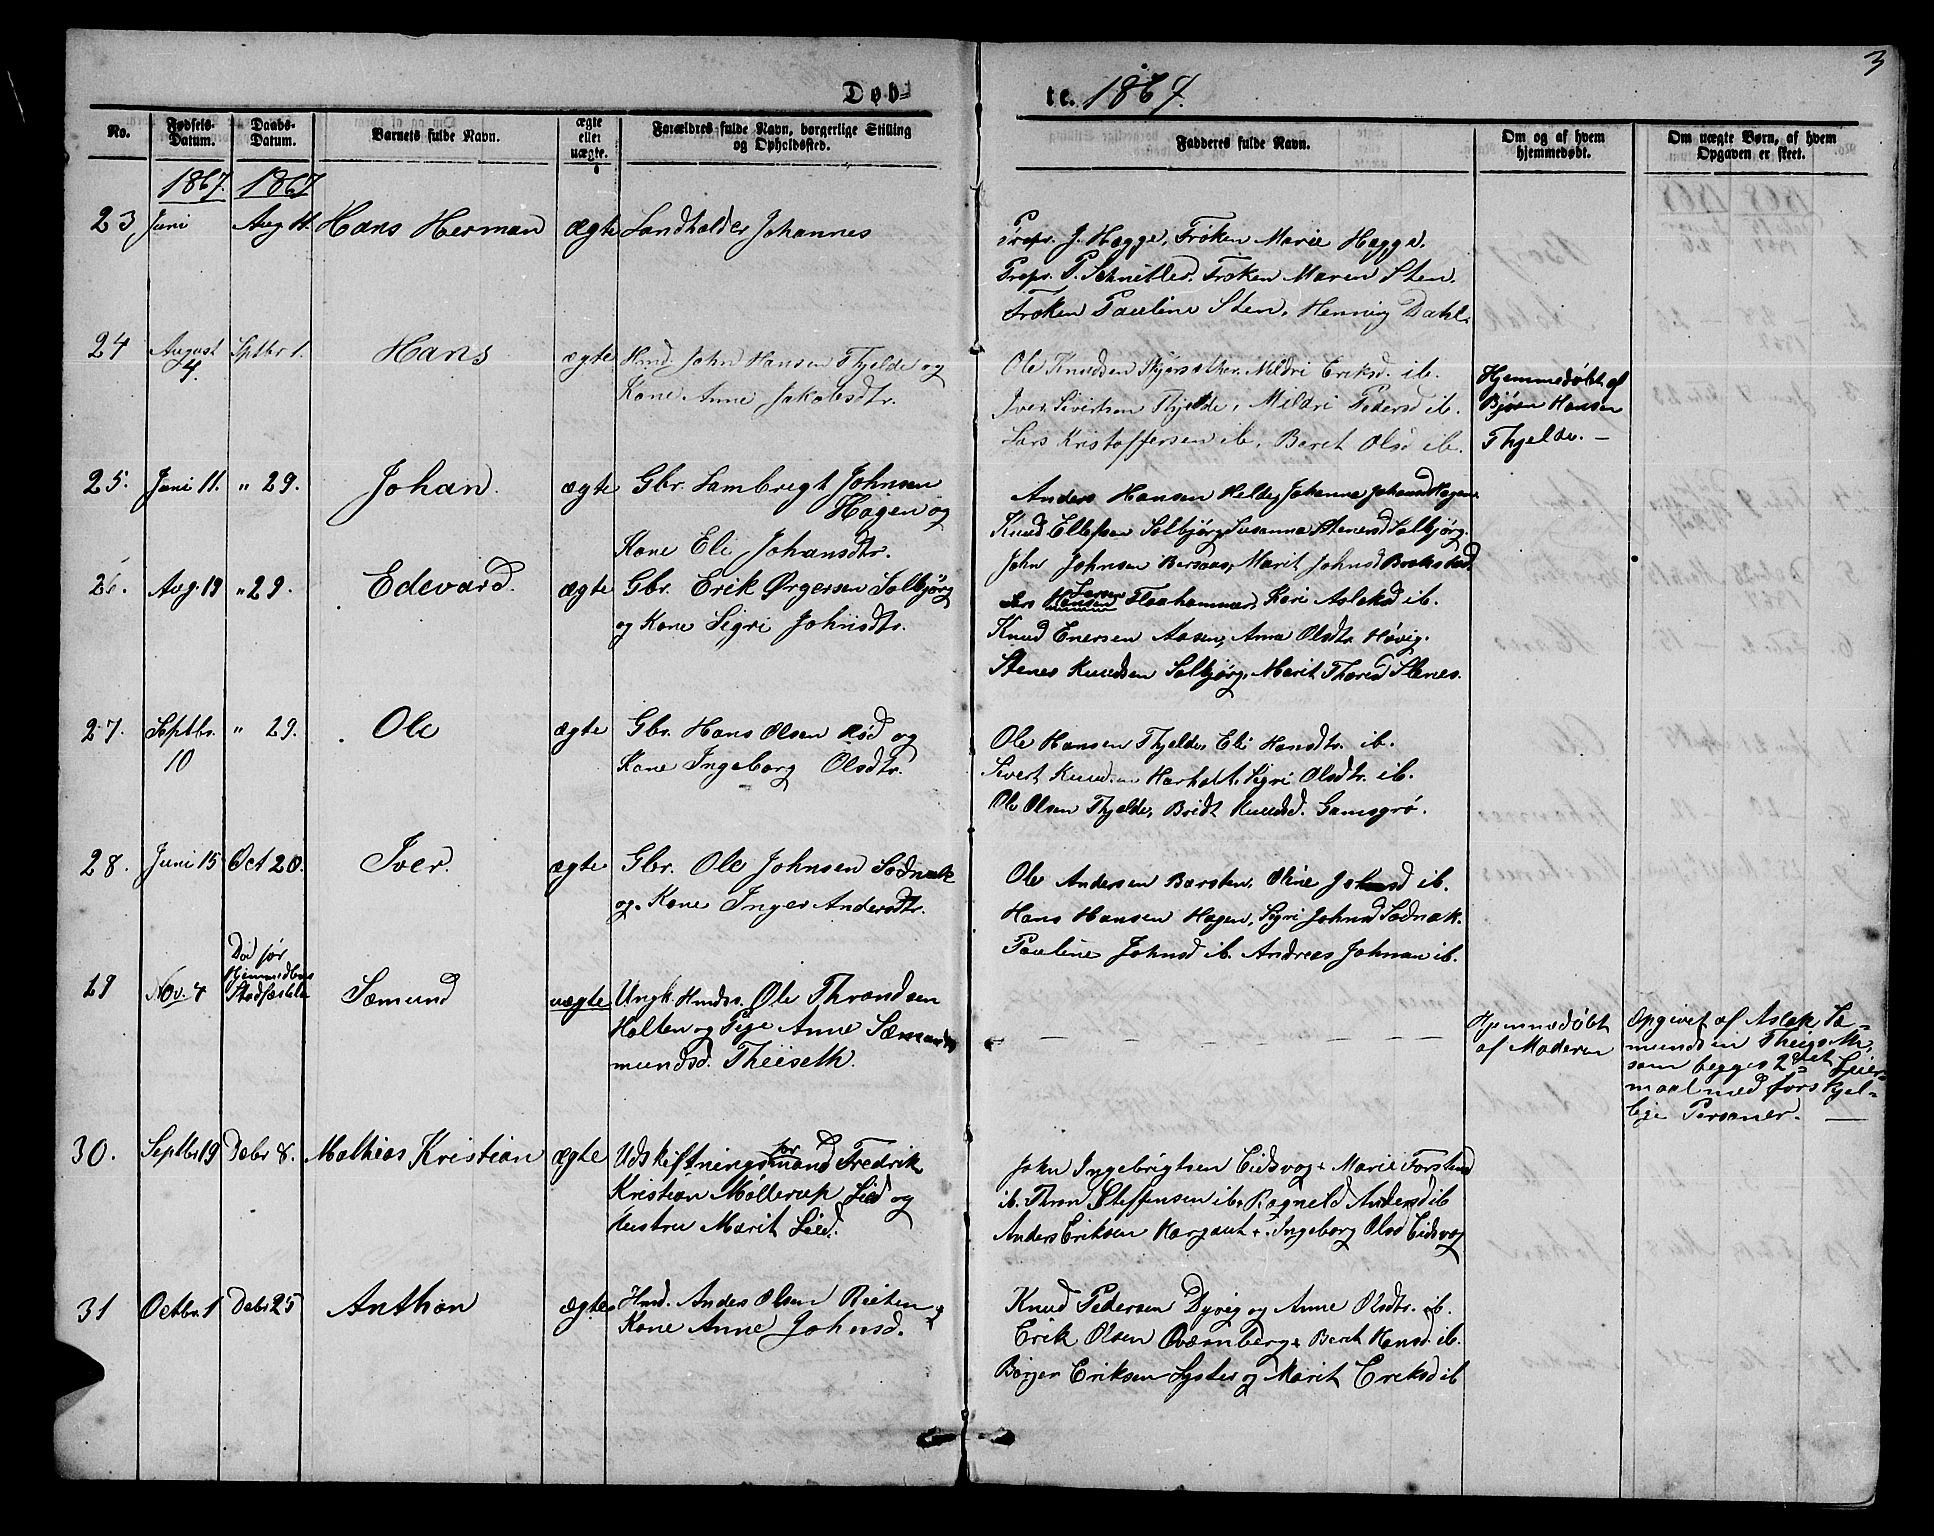 Døb=
te. 1867.
3
No.
Fødsels-
Datum.
Daabs-
Datum.
Barnets fulde Navn.
ægte
eller
uægte.
Forældres fulde Navn, borgerlige Stilling
og Opholdssted.
Fadderes fulde Navn.
Om og af hvem
hjemmedøbt.
Om uægte Børn, af hvem
Opgaven er skeet.
1867. 1867
23, Juni Aug 11. Hans Herman ægte Landholder Johannes
Propr. J. Hagge, Frøken Marie Hagge.
Propr. P. Schnitler. Frøken Maren Sten.
Frøken Pauline Sten, Henning Dahl.
24 August Septbr 1. Hans ægte Hmd. John Hansen Thjelde og
4.
Kone Anne Jakobsdtr.
Ole Knudsen Mildri Eriksd. ib.
Iver Sivertsen Thjelde, Mildri Pedersd ib.
Lars Kristoffersen ib, Beret Olsd ib.
Hjemmedøbt af
Bjørn Hansen
Thjelde. —
25. Juni 11. " 29. Johan. ægte Gbr. Lambregt Johnsen
Hagen og
Kone Eli Johansdtr.
Anders Hansen Helde, Johanna Johansd Hagen.
Knud Ellefsen Solbjørg, Susanna Stenersd Solbjørg.
John Johnsen Bersaas, Marit Johnsd Bokstad
26. Aug. 19 " 29. Edevard. ægte Gbr. Erik Ørgersen Solbjørg
og Kone Sigri Johnsdtr.
Lars Larsen Hansen Flaahammer, Kari Aslaksd ib.
Knud Enersen Aasen, Anna Olsdtr. Høvig.
Stener Knudsen Solbjørg, Marit Thoresd Stenes.
27. Septbr. " 29. Ole ægte Gbr. Hans Olsen Rød og
10
Kone Ingeborg Olsdtr.
Ole Hansen Thjelde, Eli Hansdtr. ib.
Sivert Knudsen Harholt, Sigri Olsdtr. ib.
Ole Olsen Thjelde, Bridt Knudsd. Gamsgrø.
28. Juni 15 Oct 20. Iver. ægte Gbr. Ole Johnsen Sødnak
og Kone Inger Andersdtr.
Ole Andersen Barsten, Oline Johnsd ib.
Hans Hansen Hagen, Sigri Johnsd Sødnak.
Pauline Johnsd ib. Andreas Johnsen ib.
Død før
Hjemmedbns
Stadfæstelse
29 Nov. 4 Sæmund uægte Ungk. Hmdss. Ole Throndsen
Holten og Pige Anne Sæmunds
mundsd. Theiseth.
Hjemmedøbt
af Moderen
Opgivet af Aslak Sæ-
mundsen Theiseth,
som begges 2det Leier-
maal med forskjel-
lige Personer. —
30. Septbr 19 Debr 8. Mathias Kristian ægte Udskiftningsformand Fredrik
Kristian Møllerup Lied og
Hustru Marit Lied.
John Ingebrigtsen Eidsvog + Marie Torstensd
ib. Thron Steffensen ib, Ragnild Andersd ib
Anders Eriksen Hargaut +. Ingeborg Olsd Eidsvog
31 Octbr. 1 Debr 25 Anthon ægte Hmd. Anders Olsen Reiten &
Kone Anne Johnsd.
Knud Pedersen Dyvig og Anne Olsdtr. ib.
Erik Olsen Qværnberg + Beret Hansd. ib.
Børger Eriksen Lyster og Marit Eriksd ib